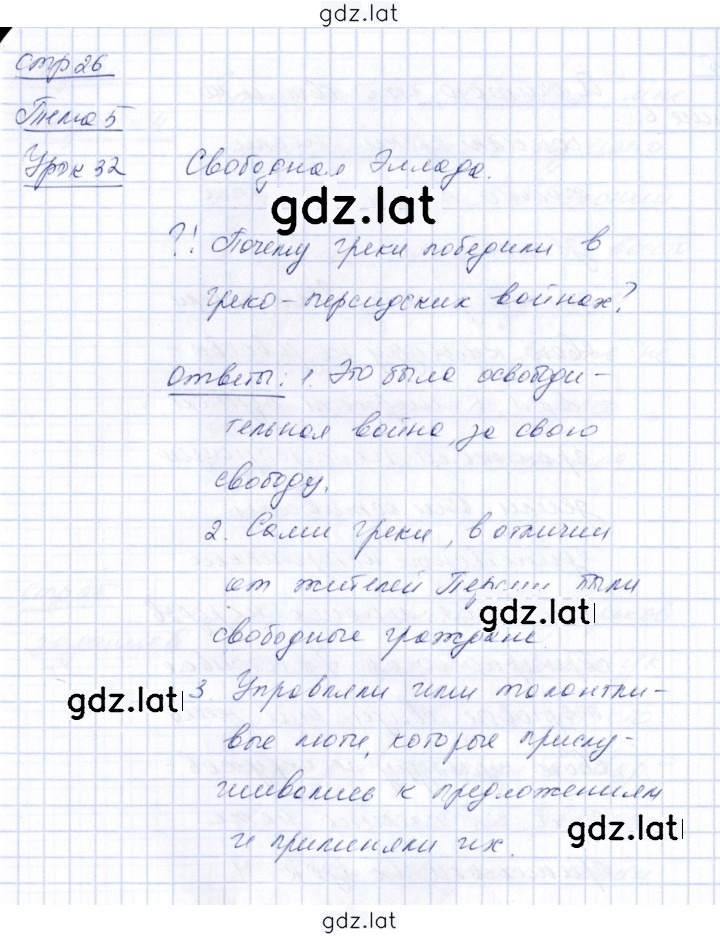 gdz.lat
стр 26
Тема 5
Урок 32 Свободная Эллада.
gdz.lat
?! Почему греки победили в
греко-персидских войнах?
Ответы: 1. Это была освободи-
тельная война, за свою
свободу.
2. Сами греки, в отличии
от жителей Персии были
gdz.lat
свободные граждане.
3. Управляли ими талантли-
gdz.lat
вые люди, которые прислу-
шивались к предложениям
gdz.lat
и применяли их.
gdz.lat